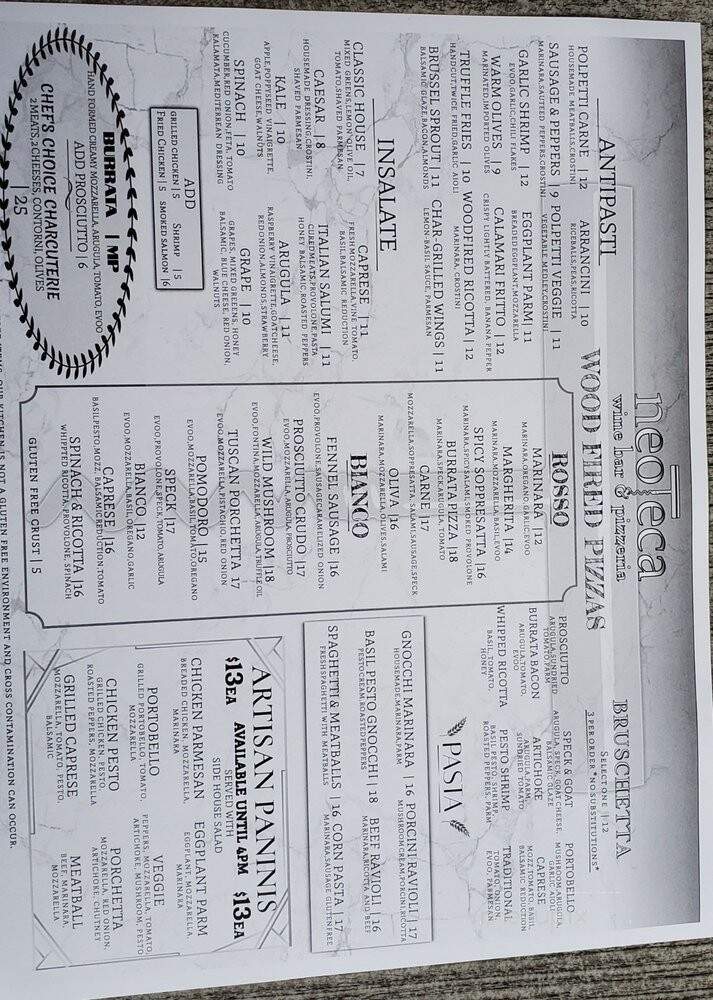 neoteca
wine bar & pizzeria
WOOD FIRED PIZZAS
ANTIPASTI
POLPETTI CARNE | 12
HOUSEMADE MEATBALLS, CROSTINI
SAUSAGE & PEPPERS | 9
MARINARA, SAUTEED PEPPERS, CROSTINI
GARLIC SHRIMP | 12
EVOO, GARLIC, CHILI FLAKES
WARM OLIVES | 9
MARINATED, IMPORTED OLIVES
TRUFFLE FRIES | 10
HANDCUT, TWICE FRIED, GARLIC AIOLI
BRUSSEL SPROUT | 11
BALSAMIC GLAZE, BACON, ALMONDS
ARRANCINI | 10
RICEBALLS, PEAS, RICOTTA
POLPETTI VEGGIE | 11
VEGETABLE MEDLEY, CROSTINI
EGGPLANT PARM | 11
BREADED EGGPLANT, MOZZARELLA
CALAMARI FRITTO | 12
CRISPY LIGHTLY BATTERED, BANANA PEPPER
WOODFIRED RICOTTA | 12
MARINARA, CROSTINI
CHAR-GRILLED WINGS | 11
LEMON-BASIL SAUCE, PARMESAN
INSALATE
CLASSIC HOUSE | 7
MIXED GREENS, LEMON, OLIVE OIL,
TOMATO, SHAVED PARMESAN
CAESAR | 8
HOUSEMADE DRESSING, CROSTINI,
SHAVED PARMESAN
KALE | 10
APPLE, POPPYSEED VINAIGRETTE,
GOAT CHEESE, WALNUTS
SPINACH | 10
CUCUMBER, RED ONION, FETA, TOMATO
KALAMATA, MEDITERREAN DRESSING
CAPRESE | 11
FRESH MOZZARELLA, VINE TOMATO,
BASIL, BALSAMIC REDUCTION
ITALIAN SALUMI | 11
CURED MEATS, PROVOLONE, PASTA
HONEY BALSAMIC ROASTED PEPPERS
ARUGULA | 11
RASPBERRY VINAIGRETTE, GOAT CHEESE,
RED ONION, ALMONDS, STRAWBERRY
GRAPE | 10
GRAPES, MIXED GREEENS, HONEY
BALSAMIC, BLUE CHEESE, RED ONION,
WALNUTS
ADD
GRILLED CHICKEN | 5 SHRIMP | 5
FRIED CHICKEN | 5 SMOKED SALMON | 6
BURRATA | MP
HAND FORMED CREAMY MOZZARELLA, ARUGULA, TOMATO, EVOO
ADD PROSCIUTTO | 6
CHEF'S CHOICE CHARCUTERIE
2 MEATS, 2 CHEESES, CONTORNI, OLIVES
| 25
ROSSO
MARINARA | 12
MARINARA, OREGANO, GARLIC, EVOO
MARGHERITA | 14
MARINARA, MOZZARELLA, BASIL, EVOO
SPICY SOPPRESATTA | 16
MARINARA, SPICY SALAMI, SMOKED PROVOLONE
BURRATA PIZZA | 18
MARINARA, SPECK, ARUGULA, TOMATO
CARNE | 17
MOZZARELLA, SOPPRESATTA, SALAMI, SAUSAGE, SPECK
OLIVA | 16
MARINARA, MOZZARELLA, OLIVES, SALAMI
BIANCO
FENNEL SAUSAGE | 16
EVOO, PROVOLONE, SAUSAGE, CARAMELIZED ONION
PROSCIUTTO CRUDO | 17
EVOO, MOZZARELLA, ARUGULA, PROSCIUTTO
WILD MUSHROOM | 18
EVOO, FONTINA, MOZZARELLA, ARUGULA, TRUFFLE OIL
TUSCAN PORCHETTA 17
EVOO, MOZZARELLA, PISTACHIO, RED ONION
POMODORO | 15
EVOO, MOZZARELLA, BASIL, TOMATO, OREGANO
SPECK | 17
EVOO, PROVOLONE, SPECK, TOMATO, ARUGULA
BIANCO | 12
EVOO, MOZZARELLA, BASIL, OREGANO, GARLIC
CAPRESE | 16
BASIL PESTO, MOZZ, BALSAMIC REDUCTION, TOMATO
SPINACH & RICOTTA | 16
WHIPPED RICOTTA, PROVOLONE, SPINACH
GLUTEN FREE CRUST | 5
BRUSCHETTA
SELECT ONE | 12
3 PER ORDER *NO SUBSTITUTIONS*
PROSCIUTTO
ARUGULA, SUNDRIED
TOMATO, PARM
BURRATA BACON
ARUGULA, TOMATO,
EVOO
WHIPPED RICOTTA
BASIL, TOMATO,
HONEY
SPECK & GOAT
ARUGULA, SPECK, GOAT CHEESE,
BALSAMIC GLAZE
ARTICHOKE
ARUGULA, PARM,
SUNDRIED TOMATO
PESTO SHRIMP
BASIL PESTO, SHRIMP,
ROASTED PEPPERS, PARM
PORTOBELLO
MUSHROOM, ARUGULA,
GARLIC AIOLI
CAPRESE
MOZZ, TOMATO, BASIL,
BALSAMIC REDUCTION
TRADITIONAL
TOMATO, ONION,
EVOO, PARMESAN
PASTA
GNOCCHI MARINARA | 16
HOUSEMADE, MARINARA, PARM
BASIL PESTO GNOCCHI | 18
PESTO CREAM, ROASTED PEPPERS
SPAGHETTI & MEATBALLS | 16
FRESH SPAGHETTI WITH MEATBALLS
PORCINI RAVIOLI | 17
MUSHROOM CREAM, PORCINI, RICOTTA
BEEF RAVIOLI | 16
MARINARA, RICOTTA AND BEEF
CORN PASTA | 17
MARINARA, SAUSAGE GLUTEN FREE
ARTISAN PANINIS
$13EA AVAILABLE UNTIL 4PM $13EA
SERVED WITH
SIDE HOUSE SALAD
CHICKEN PARMESAN
BREADED CHICKEN, MOZZARELLA,
MARINARA
PORTOBELLO
GRILLED PORTOBELLO, TOMATO
MOZZARELLA
CHICKEN PESTO
GRILLED CHICKEN, PESTO,
ROASTED PEPPERS, MOZZARELLA
GRILLED CAPRESE
MOZZARELLA, TOMATO, PESTO,
BALSAMIC
EGGPLANT PARM
EGGPLANT, MOZZARELLA,
MARINARA
VEGGIE
PEPPERS, MOZZARELLA, TOMATO,
ARTICHOKE, MUSHROOM, PESTO
PORCHETTA
MOZZARELLA, RED ONION,
ARTICHOKE, CHUTNEY
MEATBALL
BEEF, MARINARA,
MOZZARELLA
ITEMS OUR KITCHEN IS NOT A GLUTEN FREE ENVIRONMENT AND CROSS CONTAMINATION CAN OCCUR.